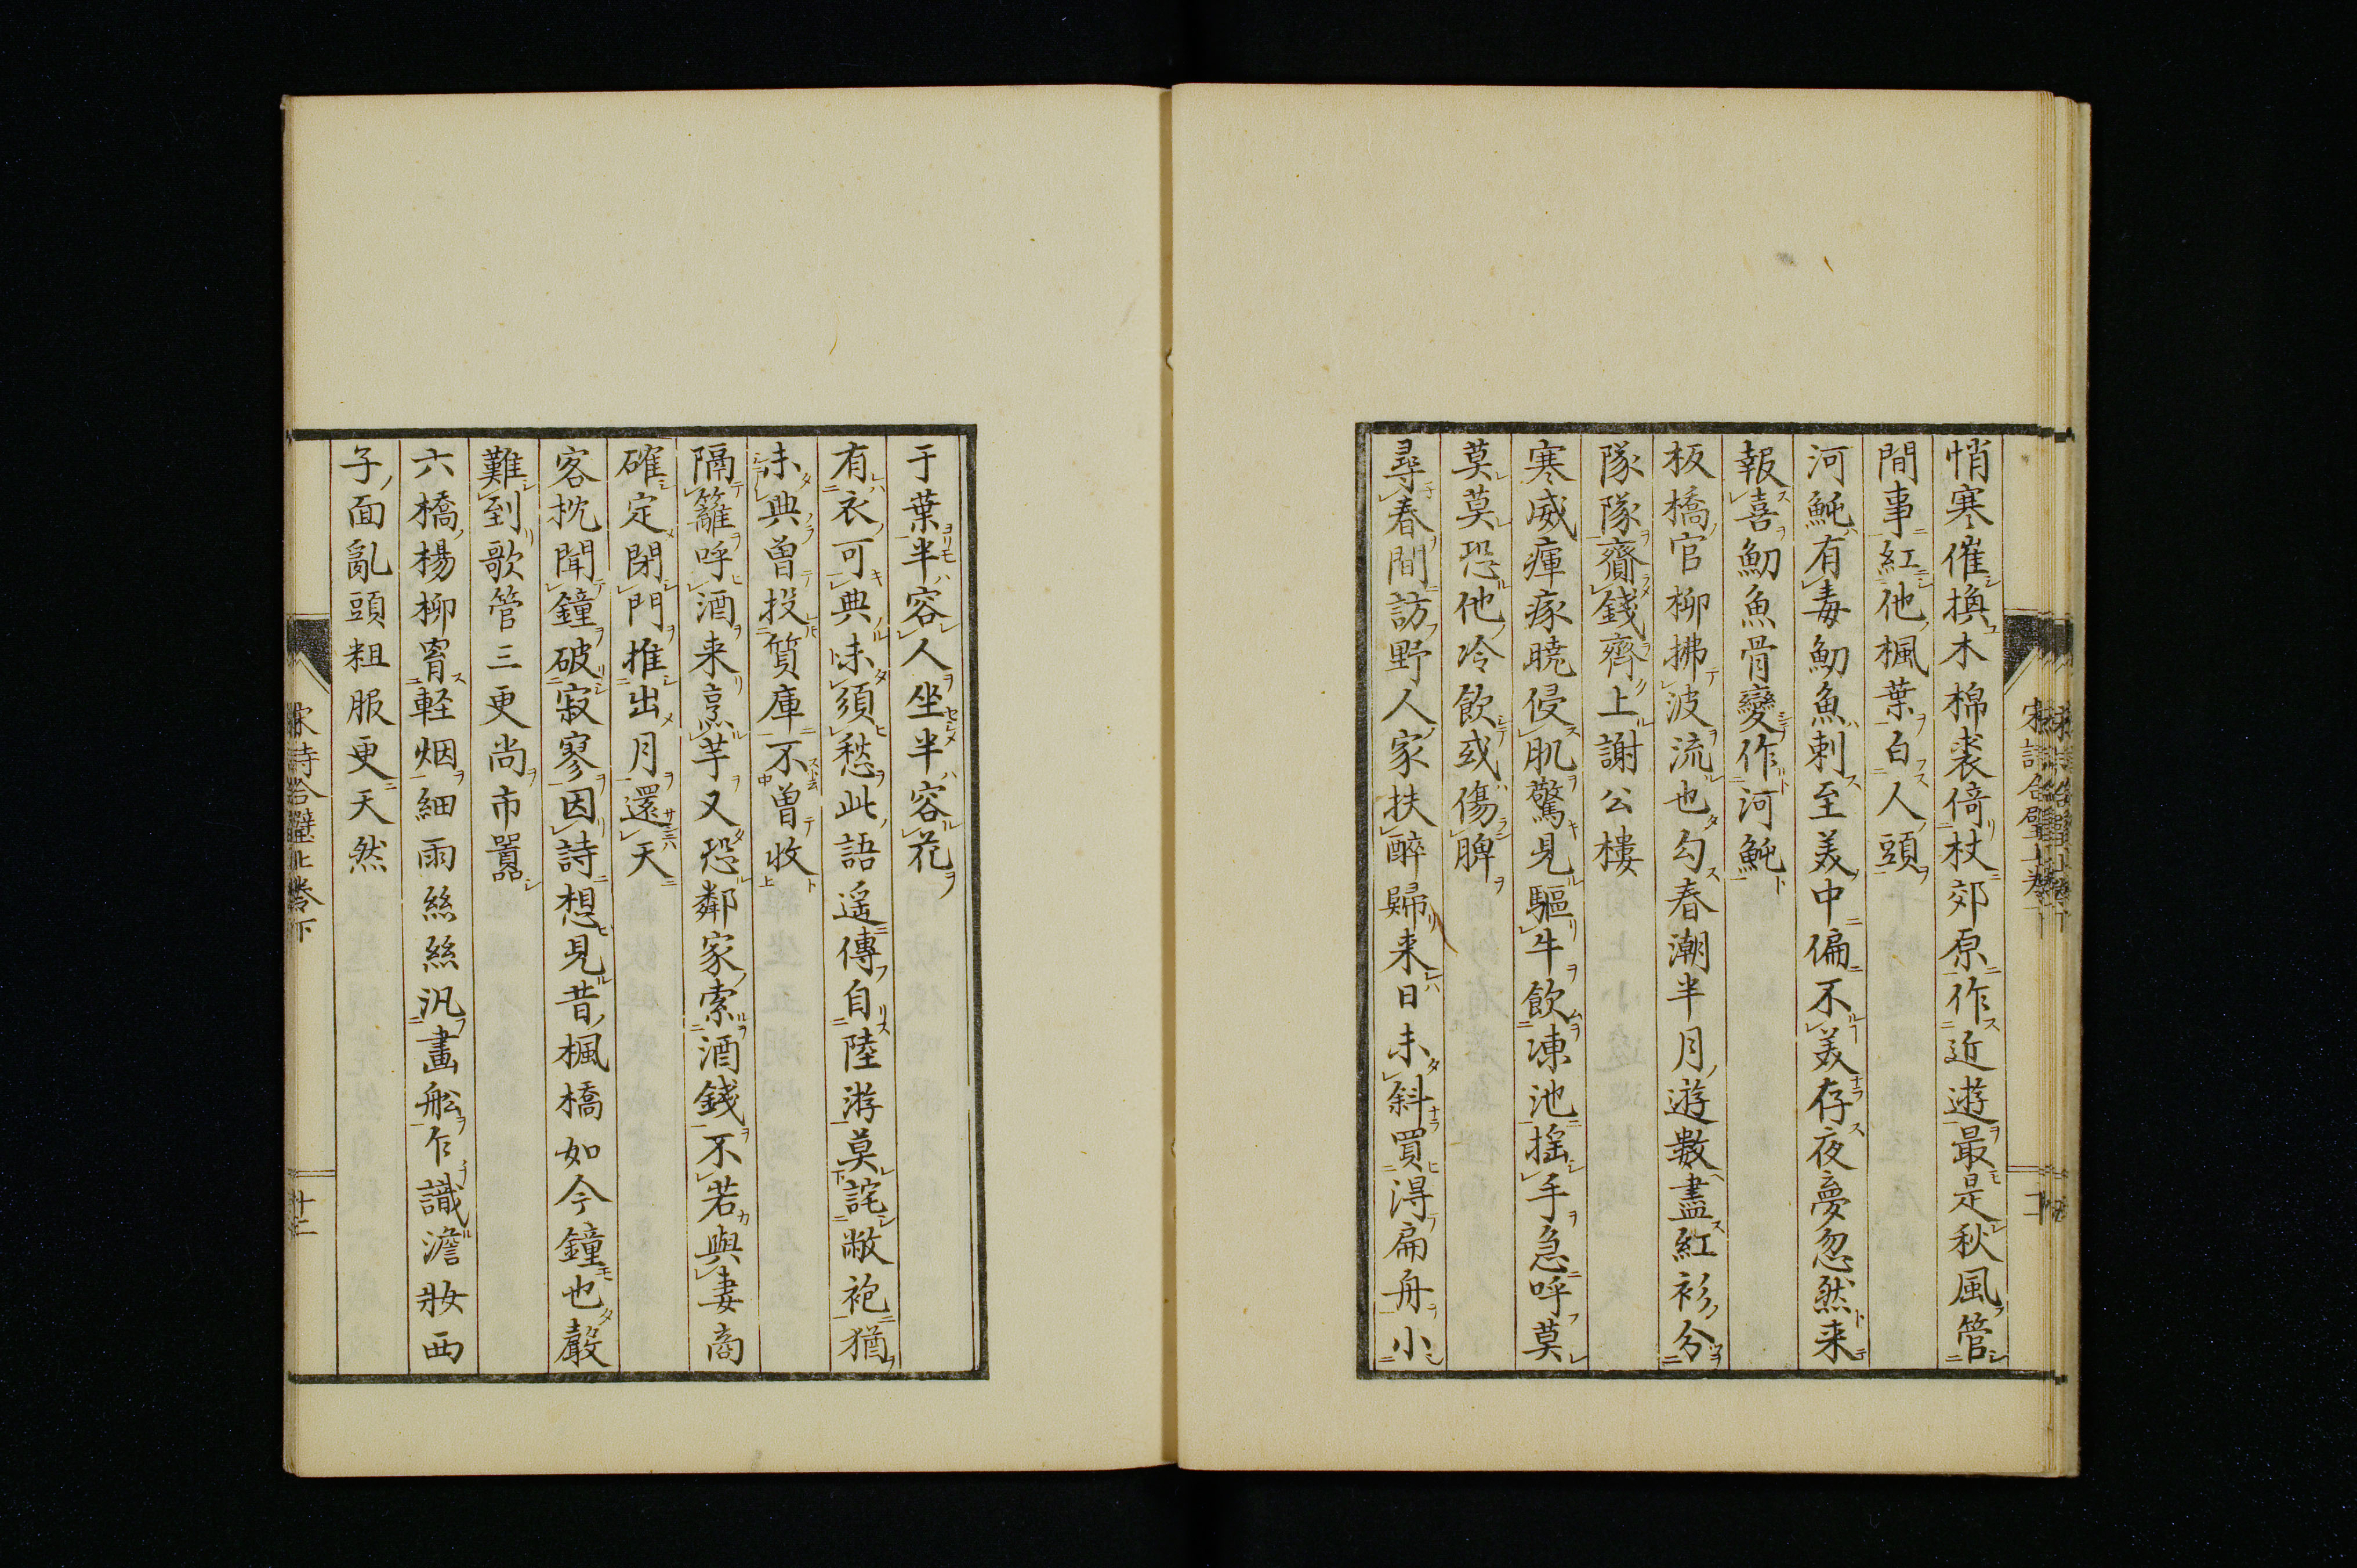 悄寒催換木棉裘倚杖郊原作近遊最是秋風管
間事紅他楓葉白人頭
河魨有毒魛魚刺至美中偏不美存夜夢忽然来
報喜魛魚骨變作河魨
板橋官柳拂波流也勾春潮半月遊數盡紅衫分
隊隊齎錢齊上謝公樓
寒威瘃曉侵肌驚見驅牛飲凍池搖手急呼莫
莫莫恐他冷飲或傷脾
尋春間訪野人家扶醉歸来日未斜買得扁舟小
于葉半容人坐半容花
有衣可典未須愁此語遥傳自陸游莫詫敝袍猶
未典曾投質庫不曾收
隔籬呼酒来烹芋又恐鄰家索酒錢不若與妻商
確定閉門推出月還天
客枕聞鐘破寂寥因詩想見昔楓橋如今鐘也聲
難到歌管三更尚市囂
六橋楊柳窅軽烟細雨絲絲汎畫舩乍識澹妝西
子面亂頭粗服更天然
十二